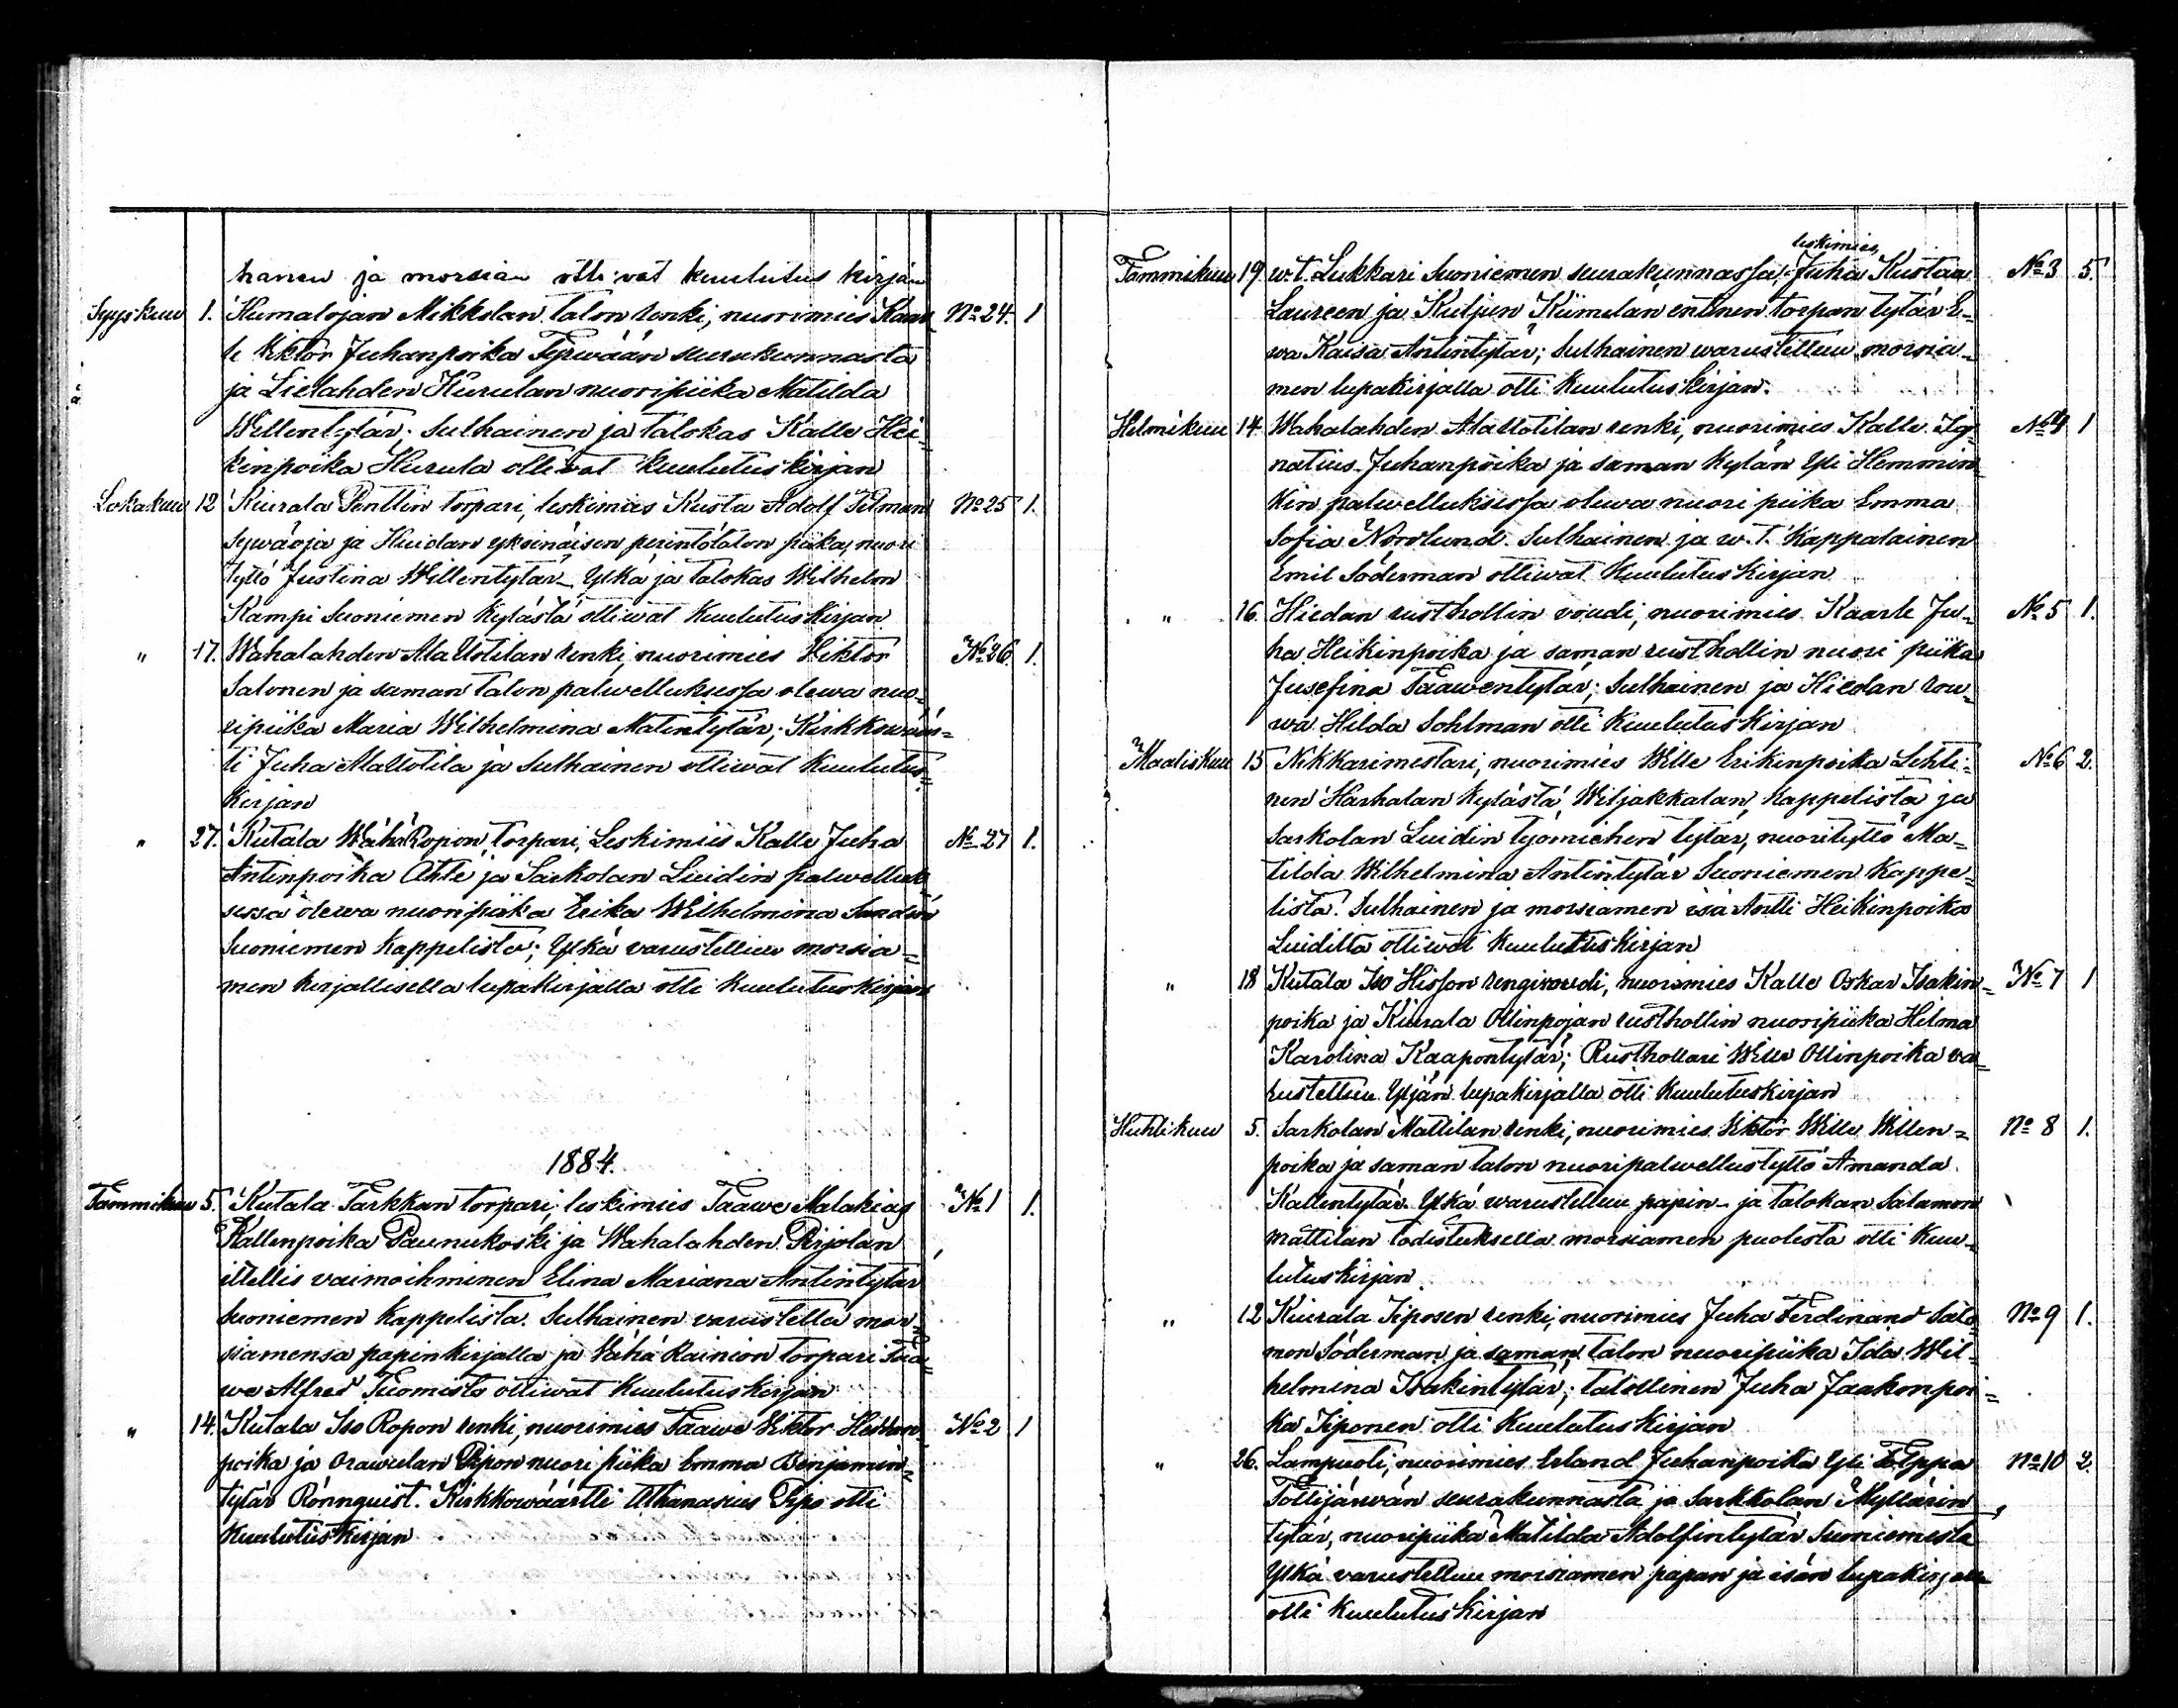 hanen ja morsian olli vat kuulutus kirjan
Syyskuu 1. Humalojan Mikkolan talon renki, nuorimies Kaar No 24. 1
le Viktor Juhanpoika Tyrwään seurakunnasta
ja Lielahden Hurulan nuoripiika Matilda
Willentytär; Sulhainen ja talokas Kalle Hei-
kinpoika Hurula ottivat kuulutuskirjan
Lokakuu 12 Kiurala Penttin torpari, leskimies Kusta Adolf Tilman No 25 1.
Sywäoja ja Hiidan yksinäisen perintötalon piika, nuori
tyttö Justina Willentytär Ylkä ja talokas Wilhelm
Kampi Suoniemen Kylästä ottiwat Kuulutus Kirjan
" 17. Wahalahden Ala Uotilan renki nuorimies Wiktor No 26 1.
Salonen ja saman talon palwelluksessa olewa nuo-
ripiika Maria Wilhelmina Matintytär; Kirkkowäär-
ti Juha AlaUotila ja Sulhainen ottiwat Kuulutus-
Kirjan
" 27. Kutala WähäRopon torpari, Leskimiis Kalle Juha No 27 1.
Antinpoika Ahte ja Sarkolan Luidin palwelluk
sessa olewa nuoripiika Erika Wilhelmina
Suoniemen Kappelista; Ylkä varustellu morsia-
men kirjallisella lupakirjalla otti Kuulutuskirjan
1884.
Tammikuu 5. Kutala Tarkkan torpari, leskimies Taawe Malakias No 1 1.
Kallenpoika Paunukoski ja Wahalahden Pirjolan
itellis vaimoihminen Elina Mariana Antintytar
Suoniemen Kappelista. Sulhainen varustella mor-
siamensa papinkirjalla ja Wähä Rainion torpari Taa-
we Alfred Tuomisto ottiwat Kuulutus kirjan
" 14. Kutala Iso Ropon renki, nuorimies Taawe Viktor No 2 1
poika ja Orawulan Pipon nuori piika Emma Benjamin-
tytär Rönnquist. Kirkkowäärtti Athanasius Pipo otti
Kuulutus Kirjan
leskimies,
Tammikuu 19. w.t. Lukkari Suoniemen seurakunnassa, Juha Kustaa No 3 5.
Laureen ja Kuljun Kümulan entinen torpan tytär E-
wa Kaisa Antintytär; Sulhainen warustelluu morsia-
men lupakirjalla otti Kuulutuskirjan.
Helmikuu 14. Wahalahden AlaUotilan renki, nuorimies Kalle Ig- No 4 1
natius Juhanpoika ja saman Kylän Yli Hemmin
Kin palwelluksessa olewa nuori piika Emma
Sofia Nordlund. Sulhainen ja w.t. Kappalainen
Emil Söderman ottiwat Kuulutus Kirjan
" 16. Hiedan rusthollin voudi, nuorimies Kaarle Ju- No 5 1.
ha Heikinpoika ja saman rusthollin nuori piika
Jusefina Taawentytär; Sulhainen ja Hiedan rou-
wa Hilda Sohlman otti Kuulutus Kirjan
Maaliskuu 15 Nikkarimestari, nuorimies Wille Erikinpoika Lehti- No 6 2.
nen Harhalan Kylästä Wiljakkalan Kappelista ja
Sarkolan Luidin tyomiehen tytar, nuorityttö Ma-
tilda Wilhelmina Antintytär Suoniemen Kappe-
lista. Sulhainen ja morsiamen isä Antti Heikinpoika
Luidilta ottiwat Kuulutus Kirjan
" 18 Kutala Iso Hisson rengivoudi, nuorimies Kalle Oskar Isakin- No 7 1
poika ja Kiurala Ollinpojan rusthollin nuoripiika Hilma
Karolina Kaapontytär; Rusthollari Wille Ollinpoika va-
rustelluu Yljän lupakirjalla otti Kuulutuskirjan
Huhtikuu 5. Sarkolan Mattilan renki, nuorimies Viktor Wille Willen- No 8 1.
poika ja saman talon nuoripalwellustyttö Amanda
Kallentytär. Ylkä warustelluu papin- ja talokan Salamon
Mattilan todistuksella morsiamen puolesta otti Kuu-
lutuskirjan
" 12 Kiurala Siposen renki, nuorimies Juha Ferdinand Salo- No 9 1.
mon Söderman ja saman talon nuoripiika Ida Wil-
helmina Isakintytär; talollinen Juha Jaakonpoi-
ka Siponen otti Kuulutus Kirjan
" 26. Lampuoli, nuorimies Erland Juhanpoika Yli Eppa No 10 2.
Tottijärwän seurakunnasta ja Sarkkolan Myllärin
tytär, nuoripiika Matilda Adolfintytär Suoniemesta
Ylkä varustelluu morsiamen papan ja isän lupakirjalla
otti Kuulutus Kirjan